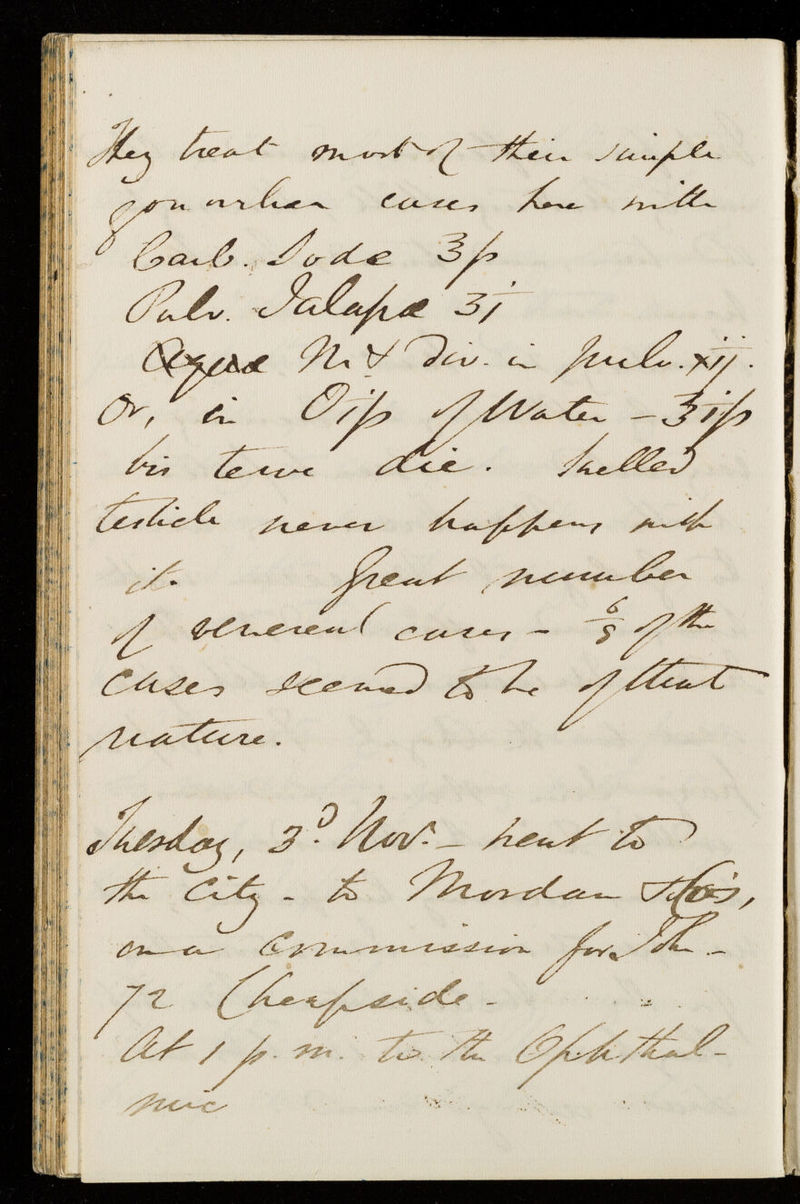 They treat most of their simple
gonorrhea cases here with
Carb. Sodæ ʒſs
Pulv. Jalapæ ʒj
Aquæ M & Div. in pulv. xij.
or, in Oiſs of Water - ʒiſs
bis terve die. Swelled
testicle never happens with
it. Great number
of venereal cases -  of the
cases seemed to be of that
nature.
Tuesday, 3d. Nov. - Went to
the City - to Mordan & Co's,
on a commission for John -
72 Cheapside -
At 1 p.m. to the Ophthal-
mic